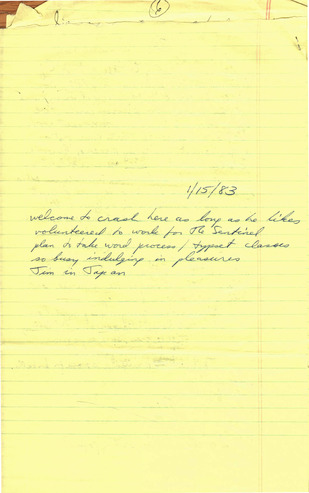 6
1/15/83
welcome to crash here as long as he likes
volunteered to work for The Sentinel
plan to take word process/typeset classes
so busy indulging in pleasures
Jim in Japan